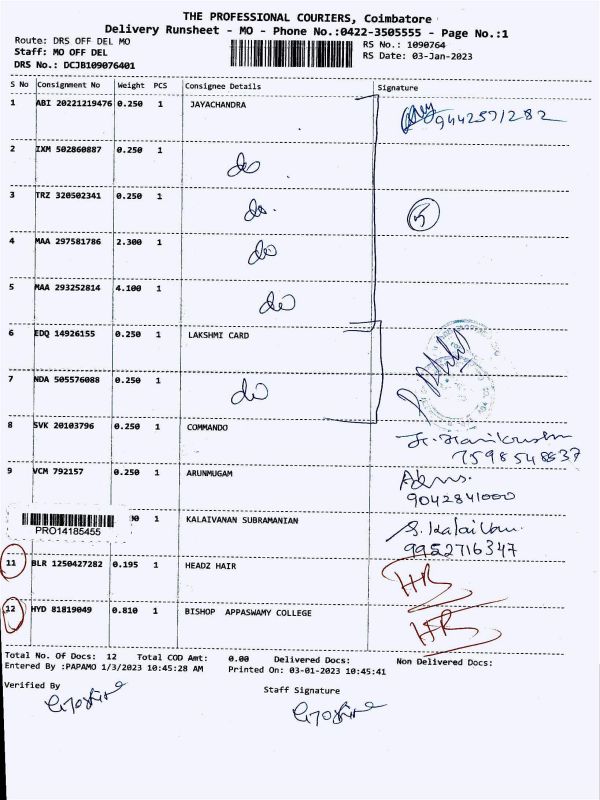 THE PROFESSIONAL COURIERS, Coimbatore
Delivery Runsheet - MO - Phone No.:0422-3505555 - Page No.:1
Route: DRS OFF DEL MO
RS No.: 1090764
Staff: MO OFF DEL
RS Date: 03-Jan-2023
DRS No.: DCJB109076401
S No Consignment No Weight PCS Consignee Details Signature
1 ABI 20221219476 0.250 1 JAYACHANDRA 9442571282
2 IXM 502860887 0.250 1 do
3 TRZ 320502341 0.250 1 do. 5
4 MAA 297581786 2.300 1 do
5 MAA 293252814 4.100 1 do
6 EDQ 14926155 0.250 1 LAKSHMI CARD
7 NDA 505576088 0.250 1 do
8 SVK 20103796 0.250 1 COMMANDO
7598548837
9 VCM 792157 0.250 1 ARUNMUGAM
9042841000
PRO14185455
1 KALAIVANAN SUBRAMANIAN S. Kalaivan
9952716347
11 BLR 1250427282 0.195 1 HEADZ HAIR HR
12 HYD 81819049 0.810 1 BISHOP APPASWAMY COLLEGE HR
Total No. Of Docs: 12 Total COD Amt: 0.00 Delivered Docs: Non Delivered Docs:
Entered By :PAPAMO 1/3/2023 10:45:28 AM Printed On: 03-01-2023 10:45:41
Verified By
Staff Signature